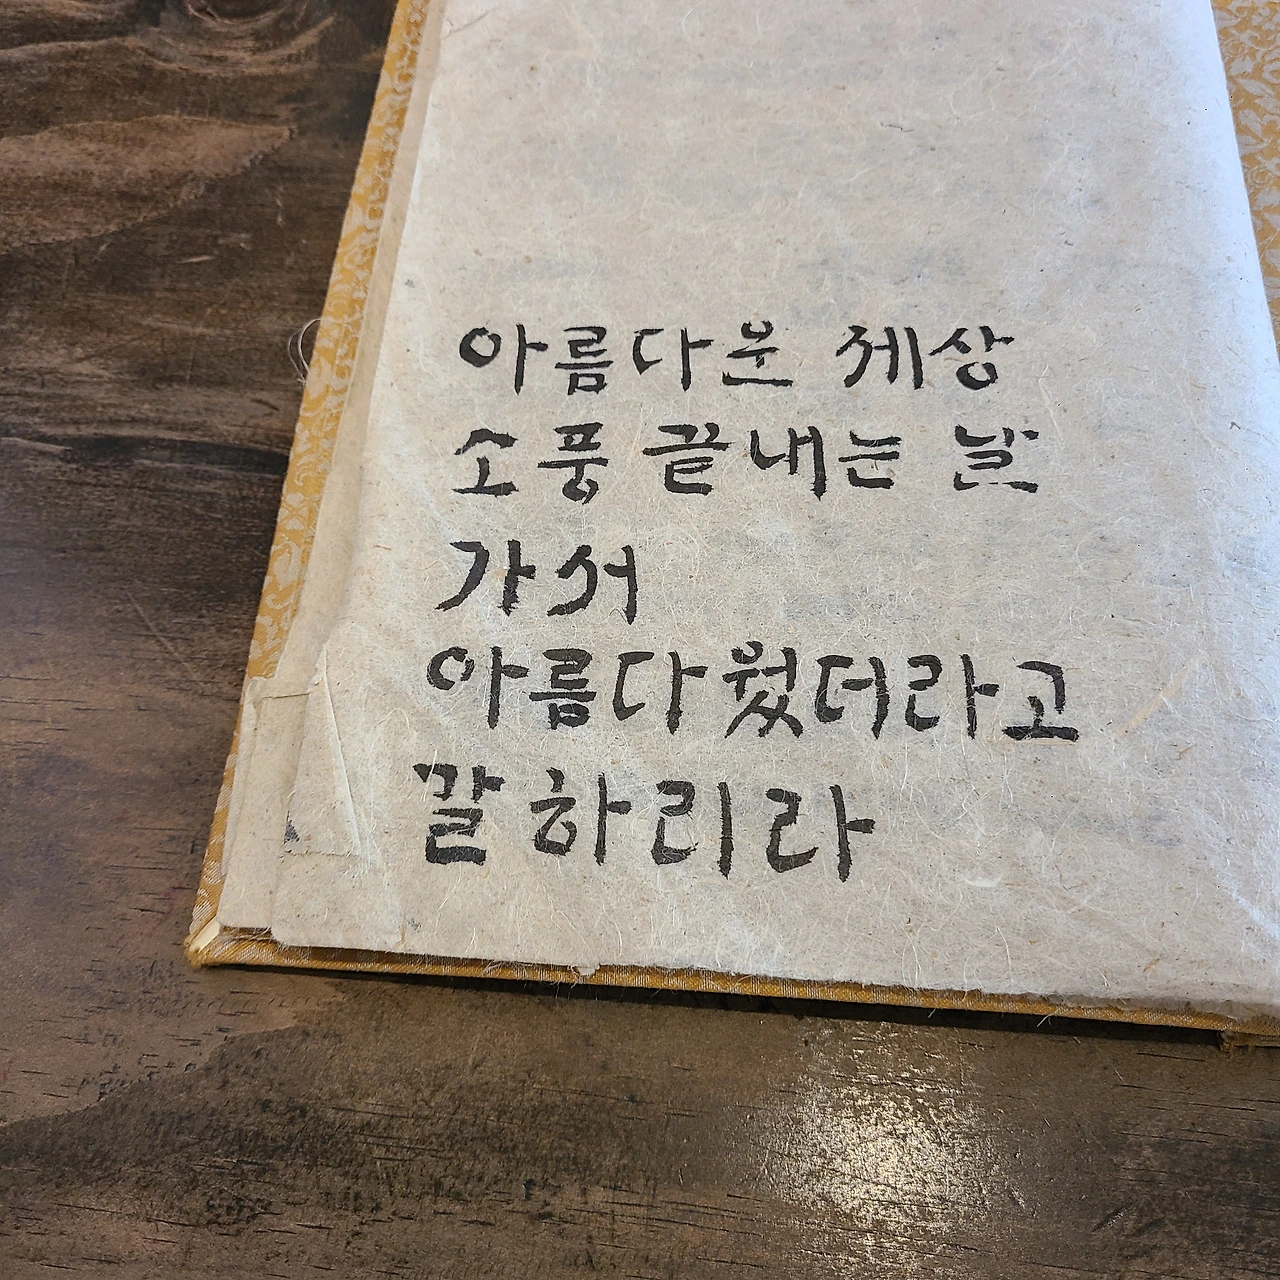 아름다운 세상
소풍 끝내는 날
가서
아름다웠더라고
말하리라